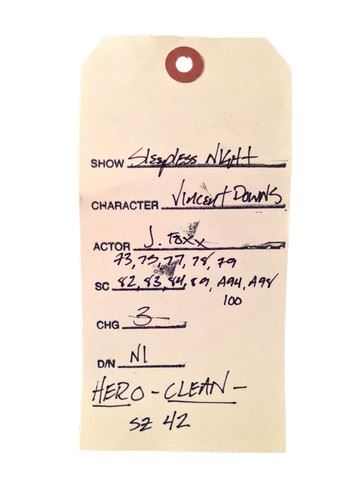 SHOW Sleepless NIGHT
CHARACTER VINCENT DOWNS
ACTOR J. FOXX
73, 75, 77, 78, 79
SC 82, 83, 84, 89, A94, A98
100
CHG 3
D/N N1
HERO - CLEAN -
SZ 42